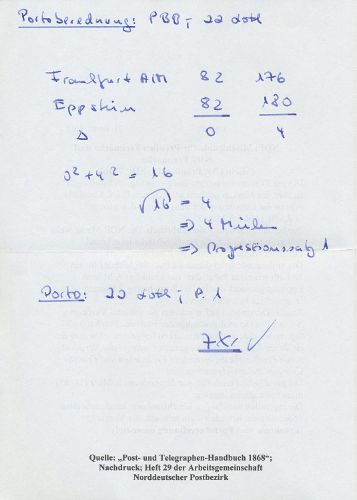 Portoberechnung: PBB; 22 Loth
Frankfurt A/M 82 176
Eppstein 82 180
Δ 0 4
0² + 4² = 16
√16 = 4
=> 4 Meilen
=> Progressionssatz 1
Porto: 22 Loth; P. 1
7 Kr ✓
Quelle: „Post- und Telegraphen-Handbuch 1868“;
Nachdruck; Heft 29 der Arbeitsgemeinschaft
Norddeutscher Postbezirk